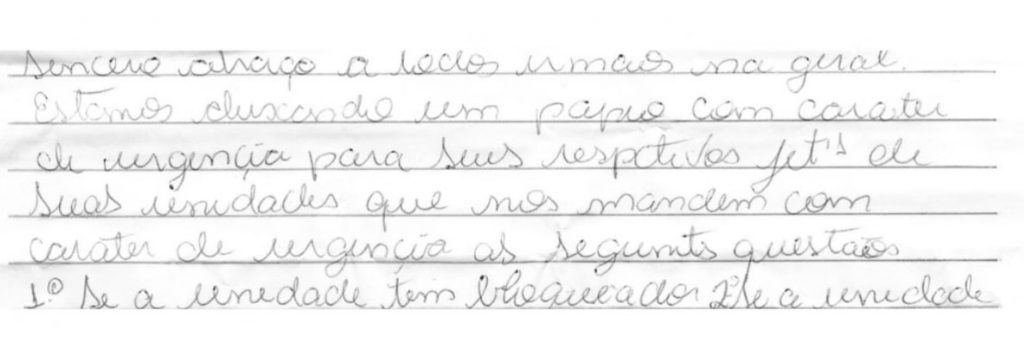 sencero abraço a todos irmãos na geral.
Estamos deixando um papio com carater
de urgençia para seus respetivos jet's de
suas unidades que nos mandem com
carater de urgençia as seguints questãos
1º se a unidade tem bloqueador 2º se a unidade